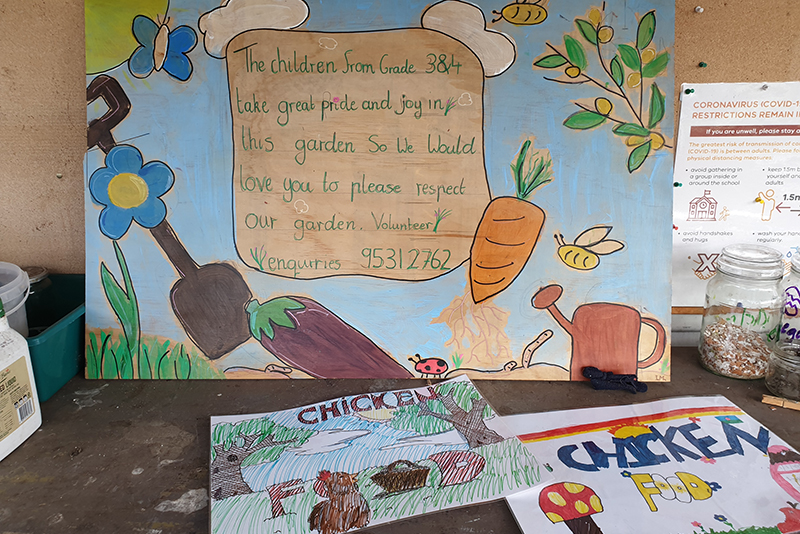 The children from Grade 3&4
take great pride and joy in
this garden So We Would
love you to please respect
our garden. Volunteer
enquiries 95312762
CORONAVIRUS (COVID-1
RESTRICTIONS REMAIN I
If you are unwell, please stay a
The greatest risk of transmission of co
(COVID-19) is between adults. Please fo
physical distancing measures
• avoid gathering in
a group inside or
around the school
• keep 1.5m b
yourself an
adults
1.5m
• avoid handshakes
and hugs
• wash your han
regularly
CHICKEN
CHICKEN
FOOD